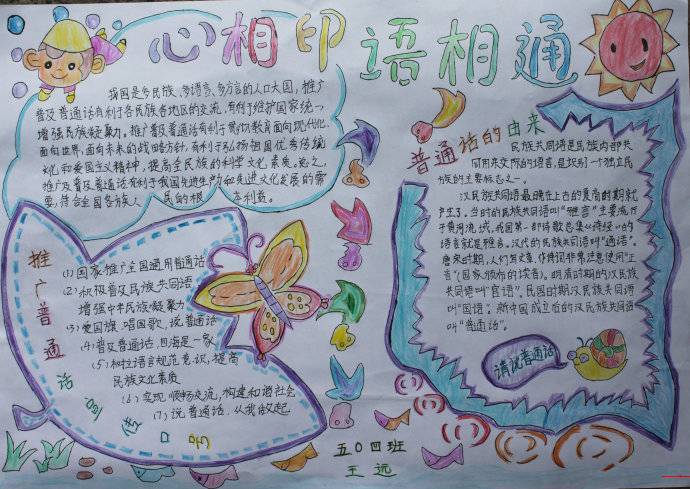 心相印 语相通
我国是多民族、多语言、多方言的人口大国，推广
普及普通话有利于各民族各地区的交流，有利于维护国家统一
增强民族凝聚力。推广普及普通话有利于贯彻教育面向现代化，
面向世界，面向未来的战略方针，有利于弘扬祖国优秀传统
文化和爱国主义精神，提高全民族的科学文化素质。总之，
推广及普及普通话有利于我国先进生产力和先进文化发展的需
要，符合全国各族人民的根本利益。
普通话的由来
民族共同语是民族内部共
同用来交际的语言，是识别一个独立民
族的主要标志之一。
汉民族共同语最晚在上古的夏商时期就
产生了。当时的民族共同语叫“雅言”主要流行
于黄河流域，我国第一部诗歌总集《诗经》的
语言就是雅言。汉代的民族共同语叫“通语”。
唐宋时期，人们写文章、作诗词非常注意使用“正
音”（国家颁布的读音）。明清时期的汉民族
共同语叫“官话”，民国时期汉民族共同语叫
“国语”。新中国成立后的汉民族共同语
叫“普通话”。
请说普通话
推广普通话宣传口号
(1)国家推广全国通用普通话
(2)积极普及民族共同语
增强中华民族凝聚力
(3)爱国旗，唱国歌，说普通话
(4)普及普通话，四海是一家
(5)树立语言规范意识，提高
民族文化素质
(6)实现顺畅交流，构建和谐社会
(7)说普通话，从我做起
五〇四班
王远